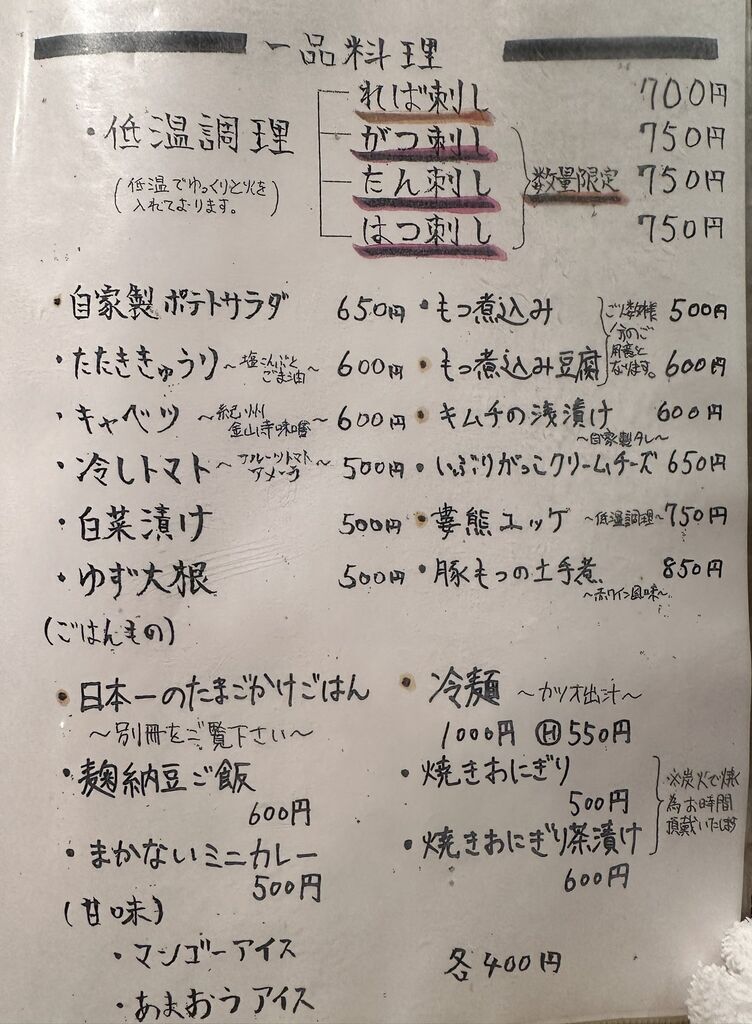 一品料理
・低温調理
(低温でゆっくりと火を
入れております。)
れば刺し 700円
がつ刺し 750円
たん刺し 750円
はつ刺し 750円
数量限定
・自家製ポテトサラダ 650円
・たたききゅうり 〜塩こんぶとごま油〜 600円
・キャベツ 〜紀州金山寺味噌〜 600円
・冷しトマト 〜フルーツトマトアメーラ〜 500円
・白菜漬け 500円
・ゆず大根 500円
・もつ煮込み 500円
・もつ煮込み豆腐 600円
用意と
なります。
・キムチの浅漬け 600円
〜自家製タレ〜
・いぶりがっこクリームチーズ 650円
ユッケ 〜低温調理〜 750円
・豚もつの土手煮 850円
〜赤ワイン風味〜
(ごはんもの)
・日本一のたまごかけごはん
〜別冊をご覧下さい〜
・麹納豆ご飯
600円
・まかないミニカレー
500円
・冷麺 〜カツオ出汁〜
1000円 Ⓗ550円
・焼きおにぎり
500円
・焼きおにぎり茶漬け
600円
※炭火で焼く
為お時間
頂戴いたします
(甘味)
・マンゴーアイス
・あまおうアイス
各400円